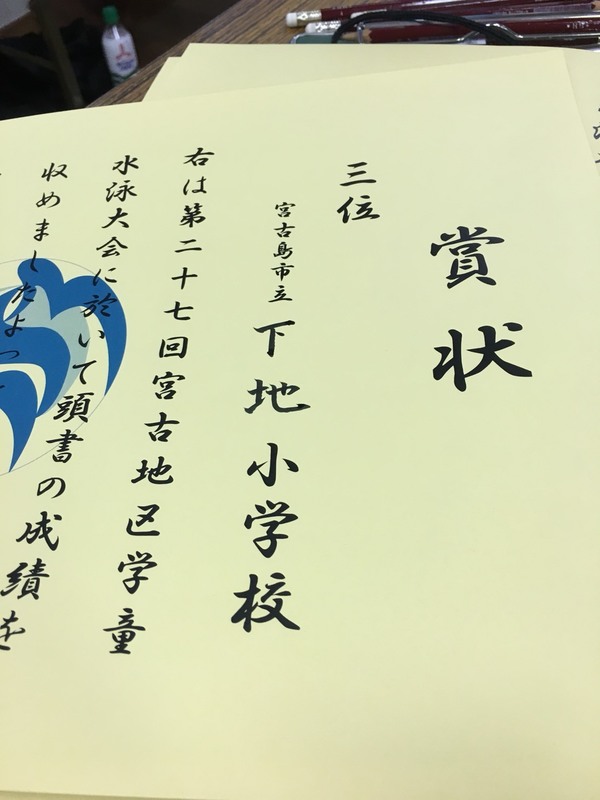 賞状
三位
宮古島市立 下地小学校
右は第二十七回宮古地区学童
水泳大会に於いて頭書の成績を
収めましたよって